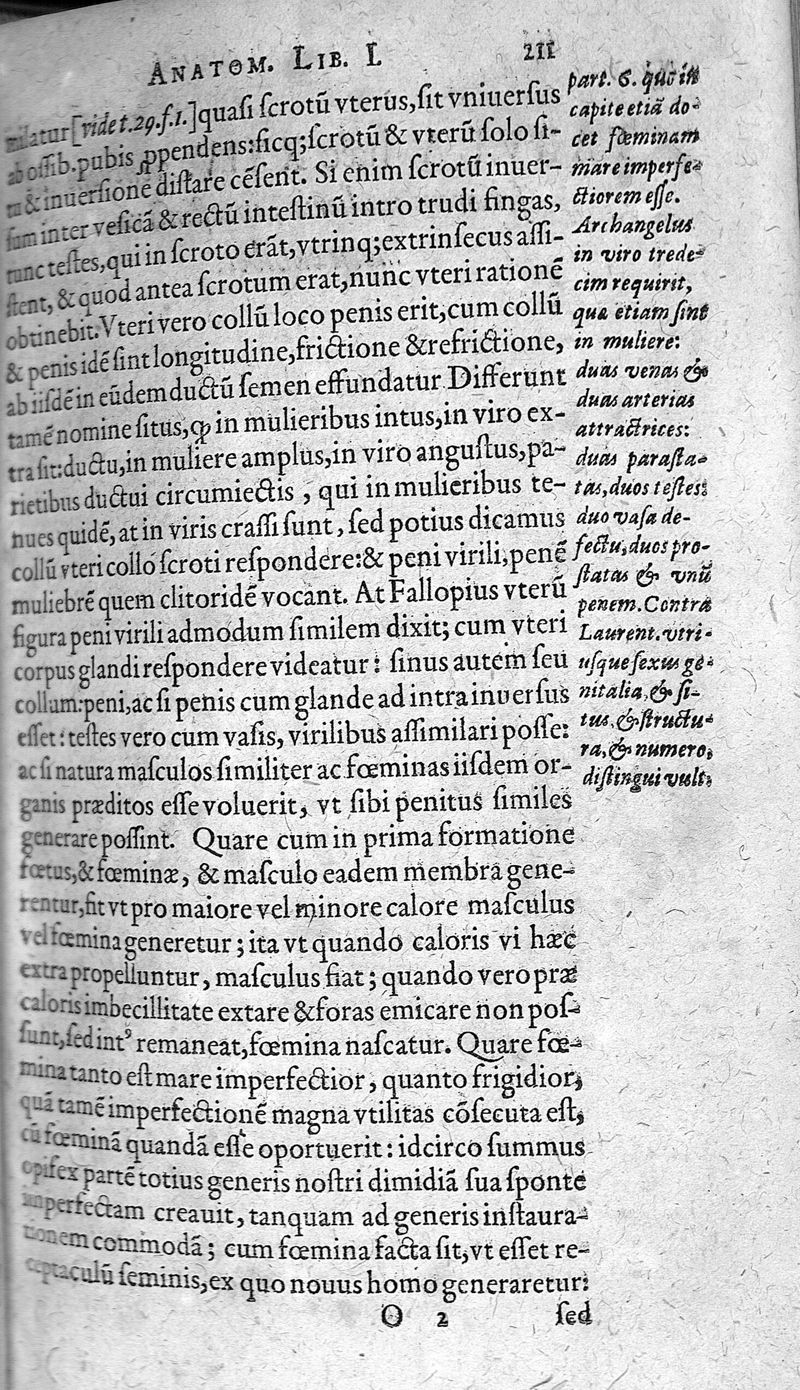 ANATOM. LIB. I.
211
[vide t.29.f.1.]quasi scrotū vterus, sit vniuersus
ab ossib. pubis ꝓpendens:sicq;scrotū & vterū solo si-
& inuersione distare cēsent. Si enim scrotū inuer-
sum inter vesicā & rectū intestinū intro trudi fingas,
tunc testes, qui in scroto erāt, vtrinq;extrinsecus assi-
stent, & quod antea scrotum erat, nunc vteri rationē
obtinebit. Vteri vero collū loco penis erit, cum collū
& penis idē sint longitudine, frictione & refrictione,
ab iisdē in eūdem ductū semen effundatur. Differunt
tamē nomine situs, ꝙ in mulieribus intus, in viro ex-
tra sit: ductu, in muliere amplus, in viro angustus, pa-
rietibus ductui circumiectis , qui in mulieribus te-
nues quidē, at in viris crassi sunt , sed potius dicamus
collū vteri collo scroti respondere: & peni virili, penē
muliebrē quem clitoridē vocant. At Fallopius vterū
figura peni virili admodum similem dixit; cum vteri
corpus glandi respondere videatur : sinus autem seu
collum:peni, ac si penis cum glande ad intra inuersus
esset : testes vero cum vasis, virilibus assimilari posse:
ac si natura masculos similiter ac fœminas iisdem or-
ganis præditos esse voluerit, vt sibi penitus similes
generare possint. Quare cum in prima formatione
fœtus,& fœminæ, & masculo eadem membra gene-
rentur, fit vt pro maiore vel minore calore masculus
vel fœmina generetur ; ita vt quando caloris vi hæc
extra propelluntur, masculus fiat ; quando vero præ
caloris imbecillitate extare & foras emicare non pos-
sunt, sed intꝰ remaneat, fœmina nascatur. Quare fœ-
mina tanto est mare imperfectior, quanto frigidior,
quā tamē imperfectionē magna vtilitas cōsecuta est,
cū fœminā quandā esse oportuerit : idcirco summus
opifex partē totius generis nostri dimidiā sua sponte
imperfectam creauit, tanquam ad generis instaura-
tionem commodā ; cum fœmina facta sit, vt esset re-
ceptaculū seminis, ex quo nouus homo generaretur:
O 2
sed
part. 6. quo in
capite etiā do-
cet fœminam
mare imperfe-
ctiorem esse.
Archangelus
in viro trede-
cim requirit,
quæ etiam sint
in muliere:
duas venas &
duas arterias
attractrices:
duas parasta-
tas, duos testes:
duo vasa de-
fectu, duos pro-
statas & vnū
penem. Contra
Laurent. vtri-
usque sexus ge-
nitalia, & si-
tus, & structu-
ra, & numero,
distingui vult.